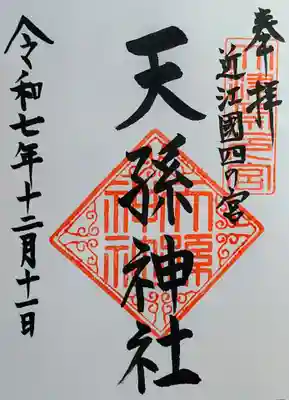 奉拝
近江國四の宮
天孫神社
令和七年十二月十一日